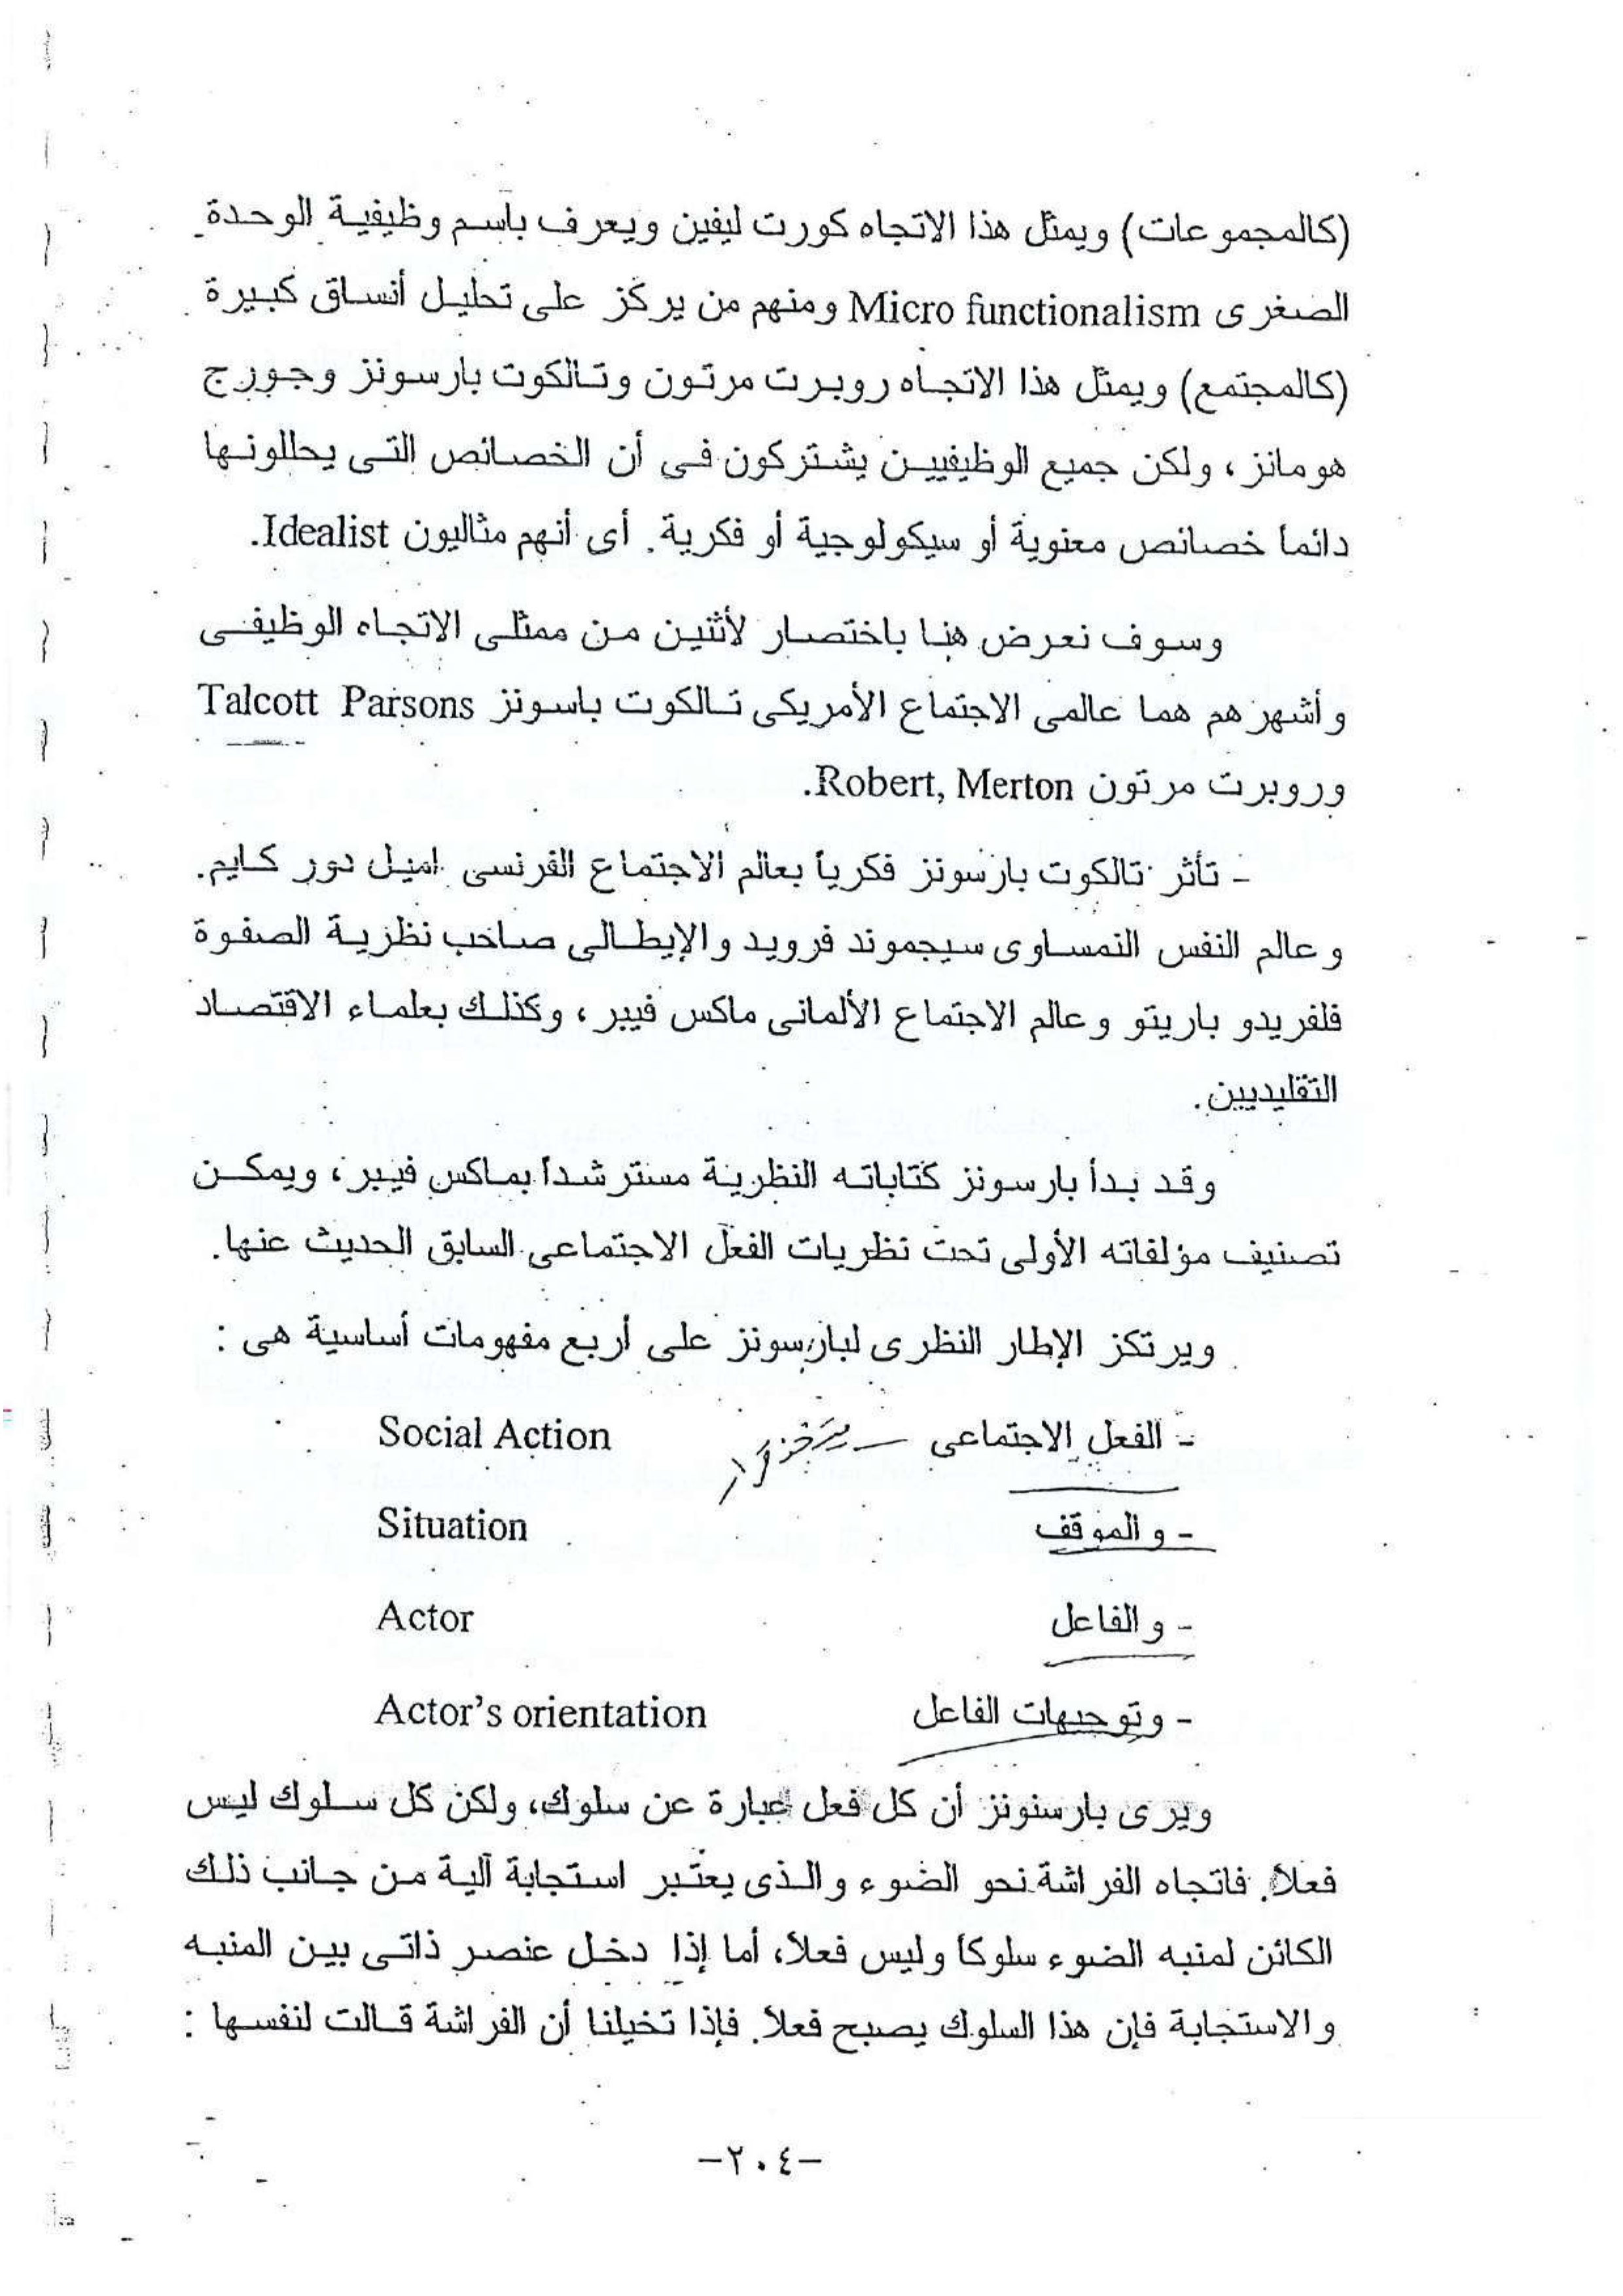 (كالمجموعات) ويمثل هذا الاتجاه كورت ليفين ويعرف باسم وظيفية الوحدة
الصغرى Micro functionalism ومنهم من يركز على تحليل أنساق كبيرة
(كالمجتمع) ويمثل هذا الاتجاه روبرت مرتون وتالكوت بارسونز وجورج
هومانز، ولكن جميع الوظيفيين يشتركون فى أن الخصائص التى يحللونها
دائما خصائص معنوية أو سيكولوجية أو فكرية. أى أنهم مثاليون Idealist.
وسوف نعرض هنا باختصار لأثنين من ممثلى الاتجاه الوظيفى
وأشهرهم هما عالمى الاجتماع الأمريكى تالكوت باسونز Talcott Parsons
وروبرت مرتون Robert, Merton.
- تأثر تالكوت بارسونز فكرياً بعالم الاجتماع الفرنسى اميل دور كايم.
وعالم النفس النمساوى سيجموند فرويد والإيطالى صاحب نظرية الصفوة
فلفريدو باريتو وعالم الاجتماع الألمانى ماكس فيبر، وكذلك بعلماء الاقتصاد
التقليديين.
وقد بدأ بارسونز كتاباته النظرية مسترشداً بماكس فيبر، ويمكن
تصنيف مؤلفاته الأولى تحت نظريات الفعل الاجتماعى السابق الحديث عنها.
ويرتكز الإطار النظرى لبارسونز على أربع مفهومات أساسية هى :
- الفعل الاجتماعى Social Action
- والموقف Situation
- والفاعل Actor
- وتوجيهات الفاعل Actor's orientation
ويرى بارسنونز أن كل فعل عبارة عن سلوك، ولكن كل سلوك ليس
فعلاً. فاتجاه الفراشة نحو الضوء والذى يعتبر استجابة آلية من جانب ذلك
الكائن لمنبه الضوء سلوكاً وليس فعلاً، أما إذا دخل عنصر ذاتى بين المنبه
والاستجابة فإن هذا السلوك يصبح فعلاً. فإذا تخيلنا أن الفراشة قالت لنفسها :
-٢٠٤-